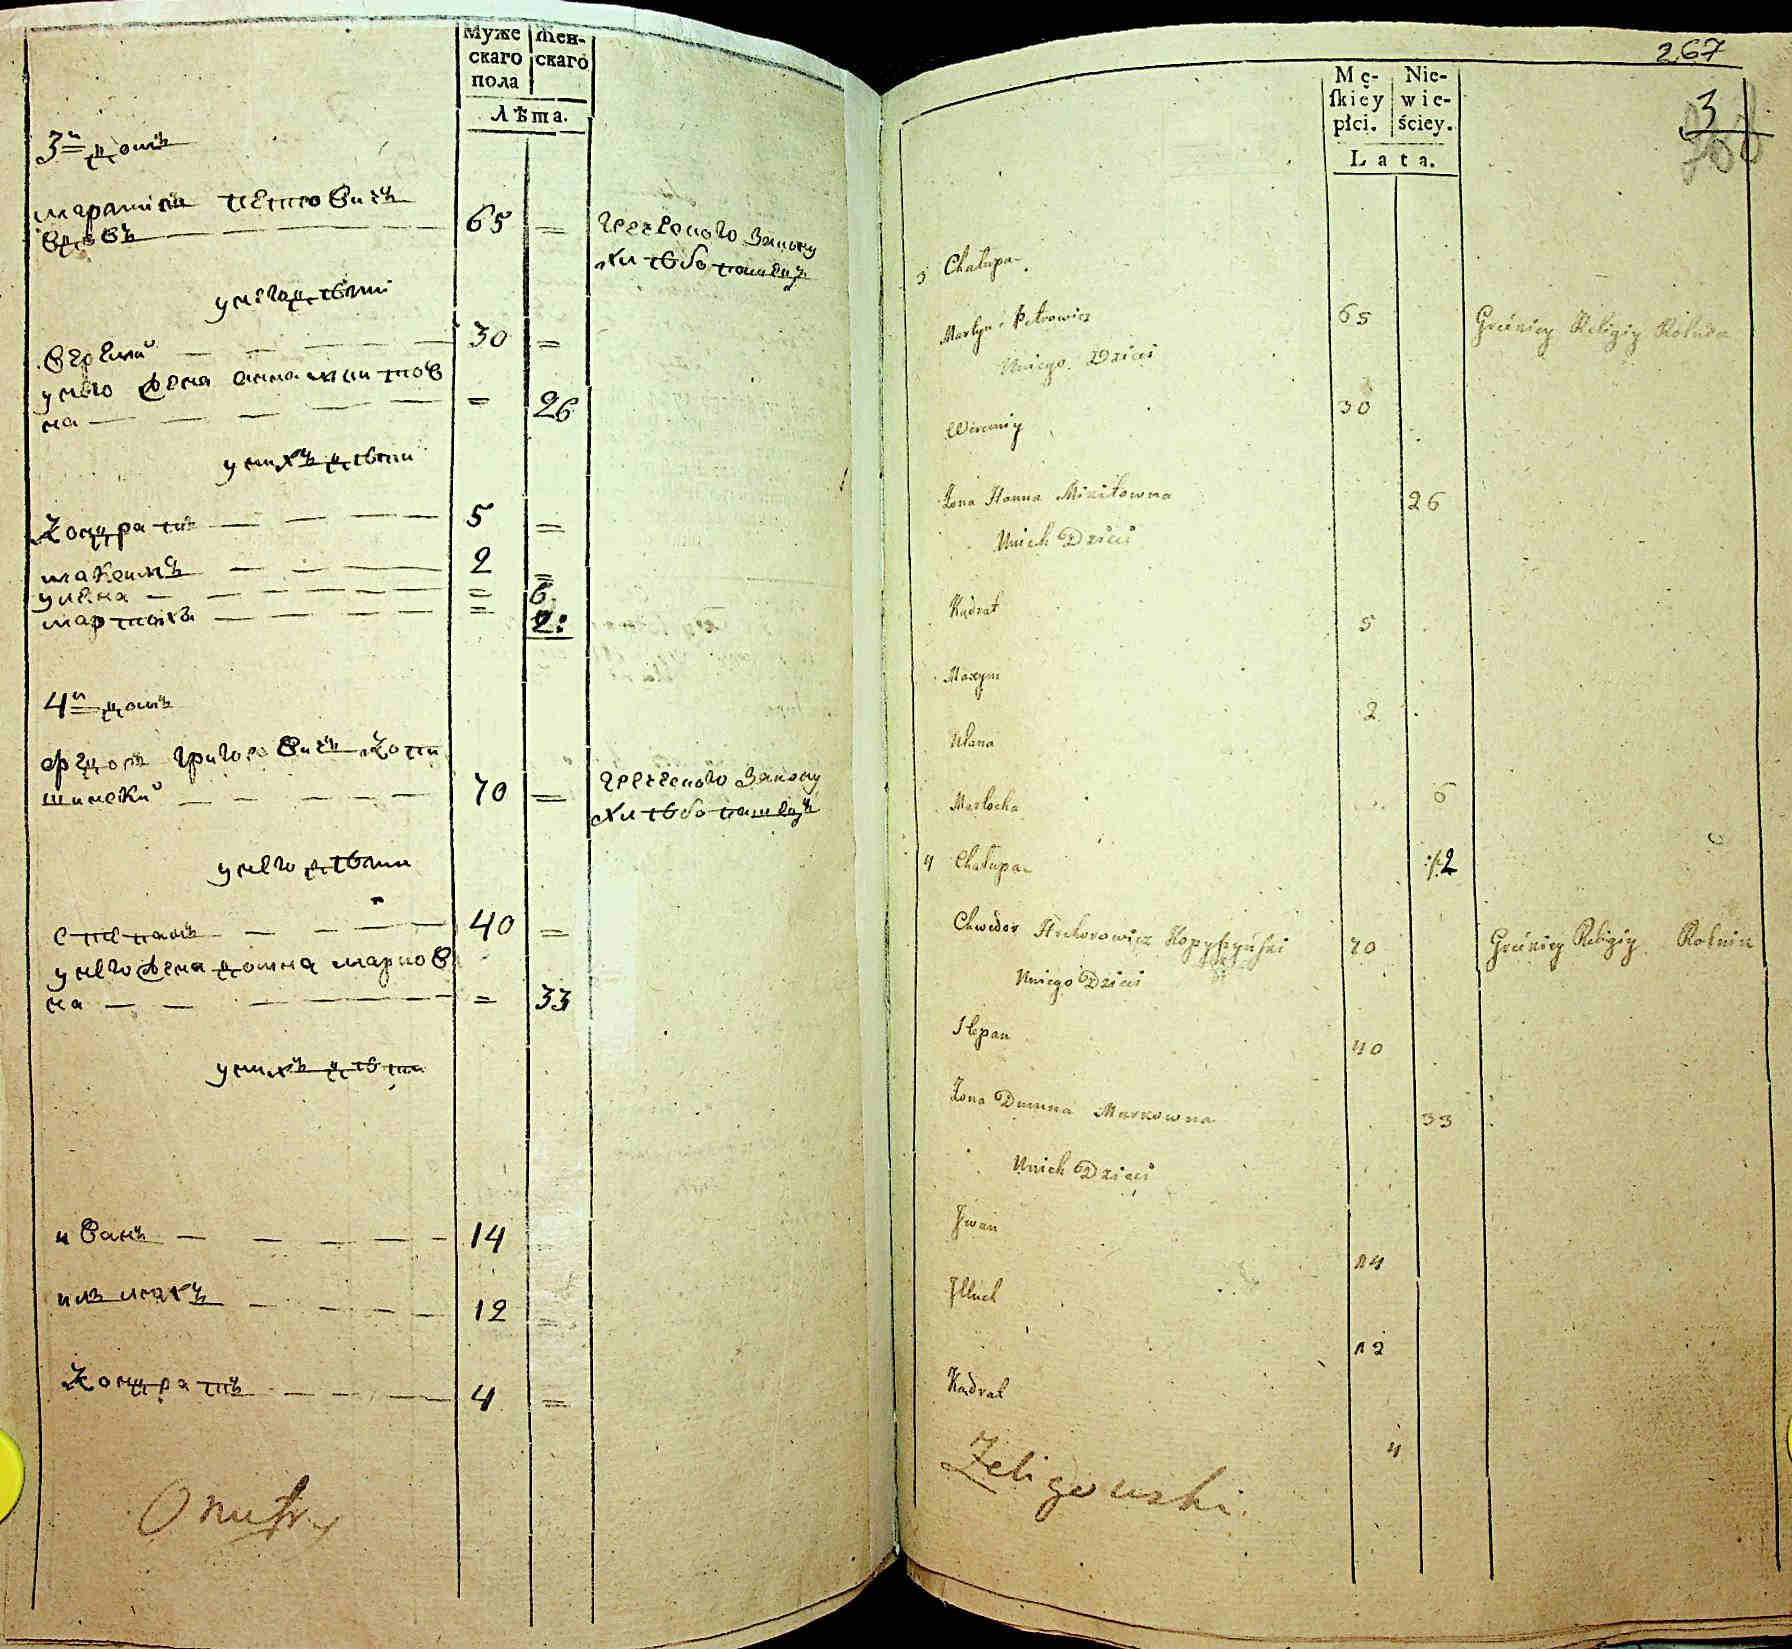 Муже
скаго
пола
Жен-
скаго
Лѣта.
3й домъ
мартинъ петровичъ
вдовъ 65 =
греческого закону
хлѣбопашецъ
унего дѣти
веремѣй 30 =
унего жена анна микитов
на = 26
унихъ дѣти
кондратъ 5 =
максимъ 2 =
уляна = 6
мартоха = 2:
4й домъ
федоръ григоровичъ копи
шинский 70 =
греческого закону
хлѣбопашецъ
унего дѣти
степанъ 40 =
унего жена домна марков
на = 33
унихъ дѣти
иванъ 14
илляхъ 12 =
кондратъ 4 =
267
Mę-
ſkiey
płci.
Nie-
wie-
ściey.
Lata.
3
3 Chałupa
Martyn Petrowicz 65 Greckiey Religiy Rolnik
Uniego Dzieci
Weremiy 30
Żona Hanna Mikitowna 26
Unich Dzieci
Kądrat 5
Maxym 2
Ulana 6
Martocha 2
4 Chałupa
Chwedor Hrehorowicz Kopyszyński 70 Greckiey Religiy Rolnik
Uniego Dzieci
Stepan 40
Żona Dumna Markowna 33
Unich Dzieci
Jwan 14
Jlluch 12
Kądrat 4
Onufry
Żeligowski.